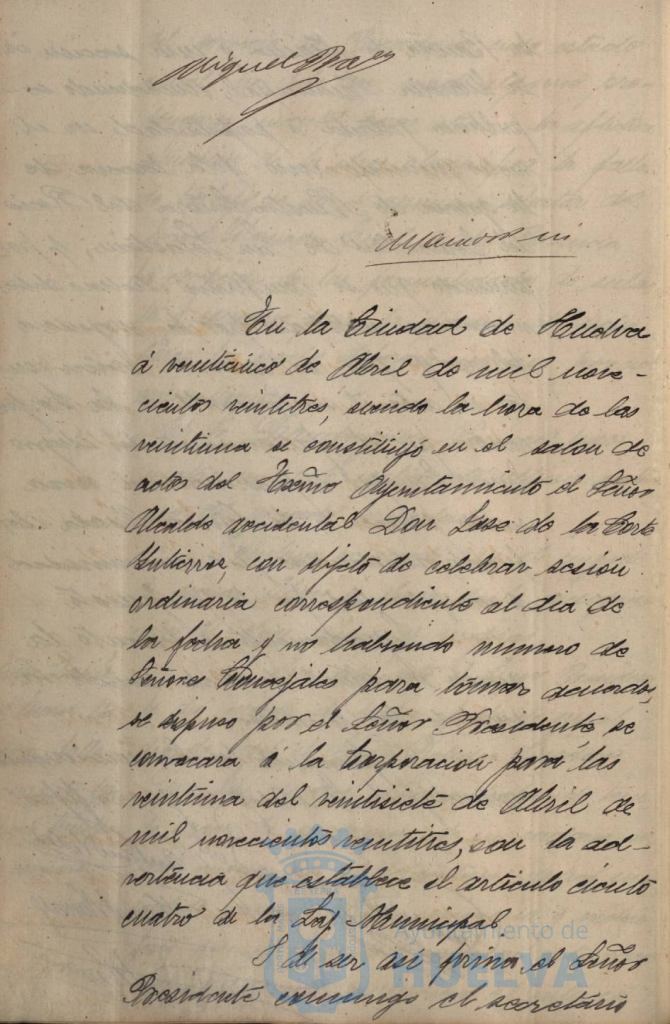 Miguel Baez
En la Ciudad de Huelva
á veinticinco de Abril de mil nove-
cientos veintitres, siendo la hora de las
veintiuna se constituyó en el salon de
actos del Excmo Ayuntamiento el Señor
Alcalde accidental Don José de la Corte
Gutierrez, con objeto de celebrar sesión
ordinaria correspondiente al dia de
la fecha y no habiendo numero de
Señores Concejales para tomar acuerdos,
se dispuso por el Señor Presidente, se
convocara á la Corporación para las
veintiuna del veintisiete de Abril de
mil novecientos veintitres, con la ad-
vertencia que establece el articulo ciento
cuatro de la Ley Municipal.
Y de ser así firma el Señor
Presidente conmigo el secretario
Ayuntamiento de
HUELVA